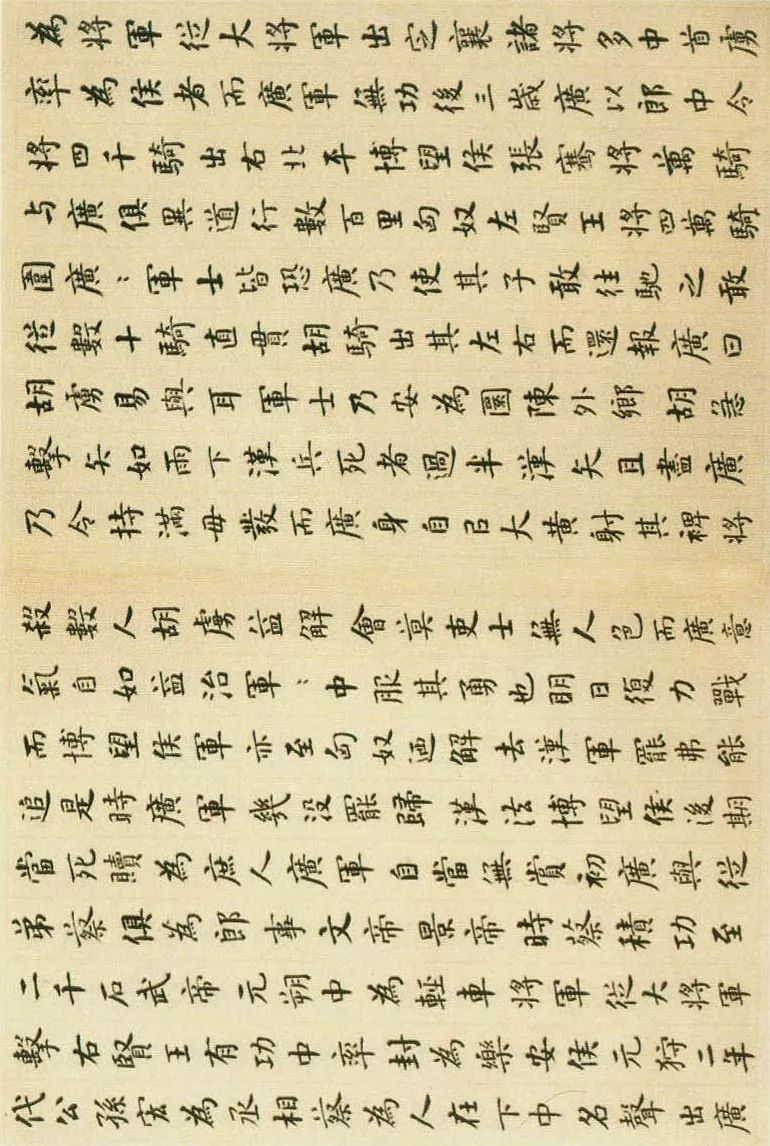 為將軍從大將軍出定襄諸將多中首虜
率為侯者而廣軍無功後三歲廣以郎中令
將四千騎出右北平博望侯張騫將萬騎
与廣俱異道行數百里匈奴左賢王將四萬騎
圍廣〻軍士皆恐廣乃使其子敢往馳之敢
從數十騎直貫胡騎出其左右而還報廣曰
胡虜易與耳軍士乃安為圜陳外鄉胡急
擊矢如雨下漢兵死者過半漢矢且盡廣
乃令持滿毋發而廣身自以大黃射其裨將
殺數人胡虜益解會莫吏士無人色而廣意
氣自如益治軍〻中服其勇也明日復力戰
而博望侯軍亦至匈奴迺解去漢軍罷弗能
追是時廣軍幾沒罷歸漢法博望侯後期
當死贖為庶人廣軍自當無賞初廣與從
弟蔡俱為郎事文帝景帝時蔡積功至
二千石武帝元朔中為輕車將軍從大將軍
擊右賢王有功中率封為樂安侯元狩二年
代公孫宏為丞相蔡為人在下中名聲出廣